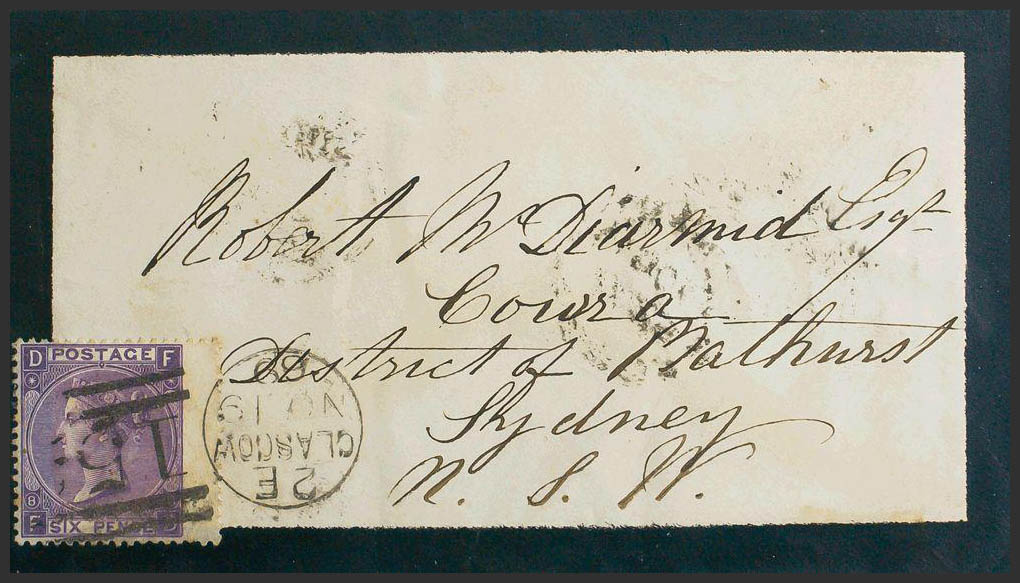 Robert McDiarmid Esqr
Cowra
District of Bathurst
Sydney
N. S. W.
D POSTAGE F
8
F SIX PENCE D
159
2E
GLASGOW
NO 19